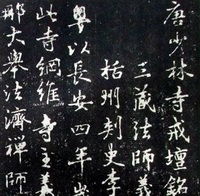 唐少林寺戒壇銘
三藏法師義
括州刺史李
粵以長安四年歲
此寺綱維寺主義
那大舉法濟禪師